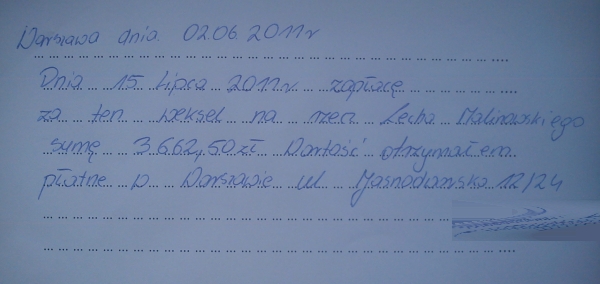 Warszawa dnia 02.06.2011r
Dnia 15 Lipca 2011r. zapłacę
za ten weksel na rzecz Lecha Malinowskiego
sumę 3.662,50 zł Wartość otrzymałem
płatne w Warszawie ul. Jasnodworska 12/24